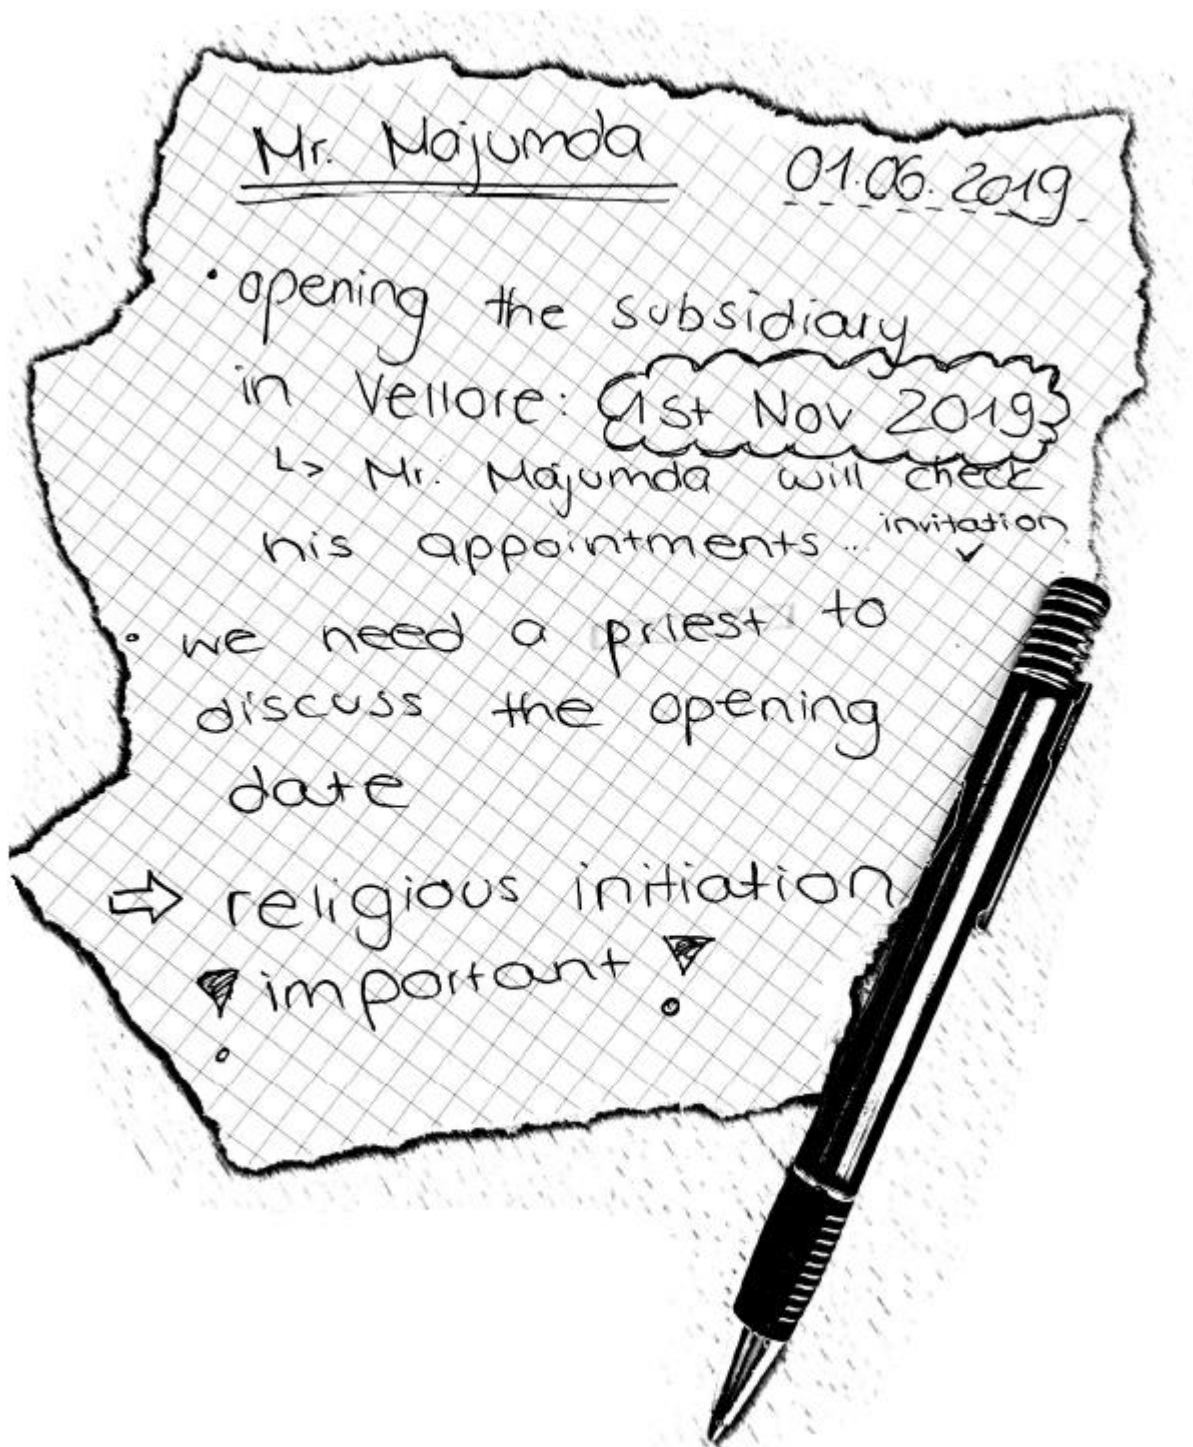 Mr. Majumda
01.06.2019
• opening the subsidiary
in Vellore: 1st Nov 2019
↳ Mr. Majumda will check
his appointments.. invitation ✓
• we need a priest to
discuss the opening
date
⇨ religious initiation
! important !